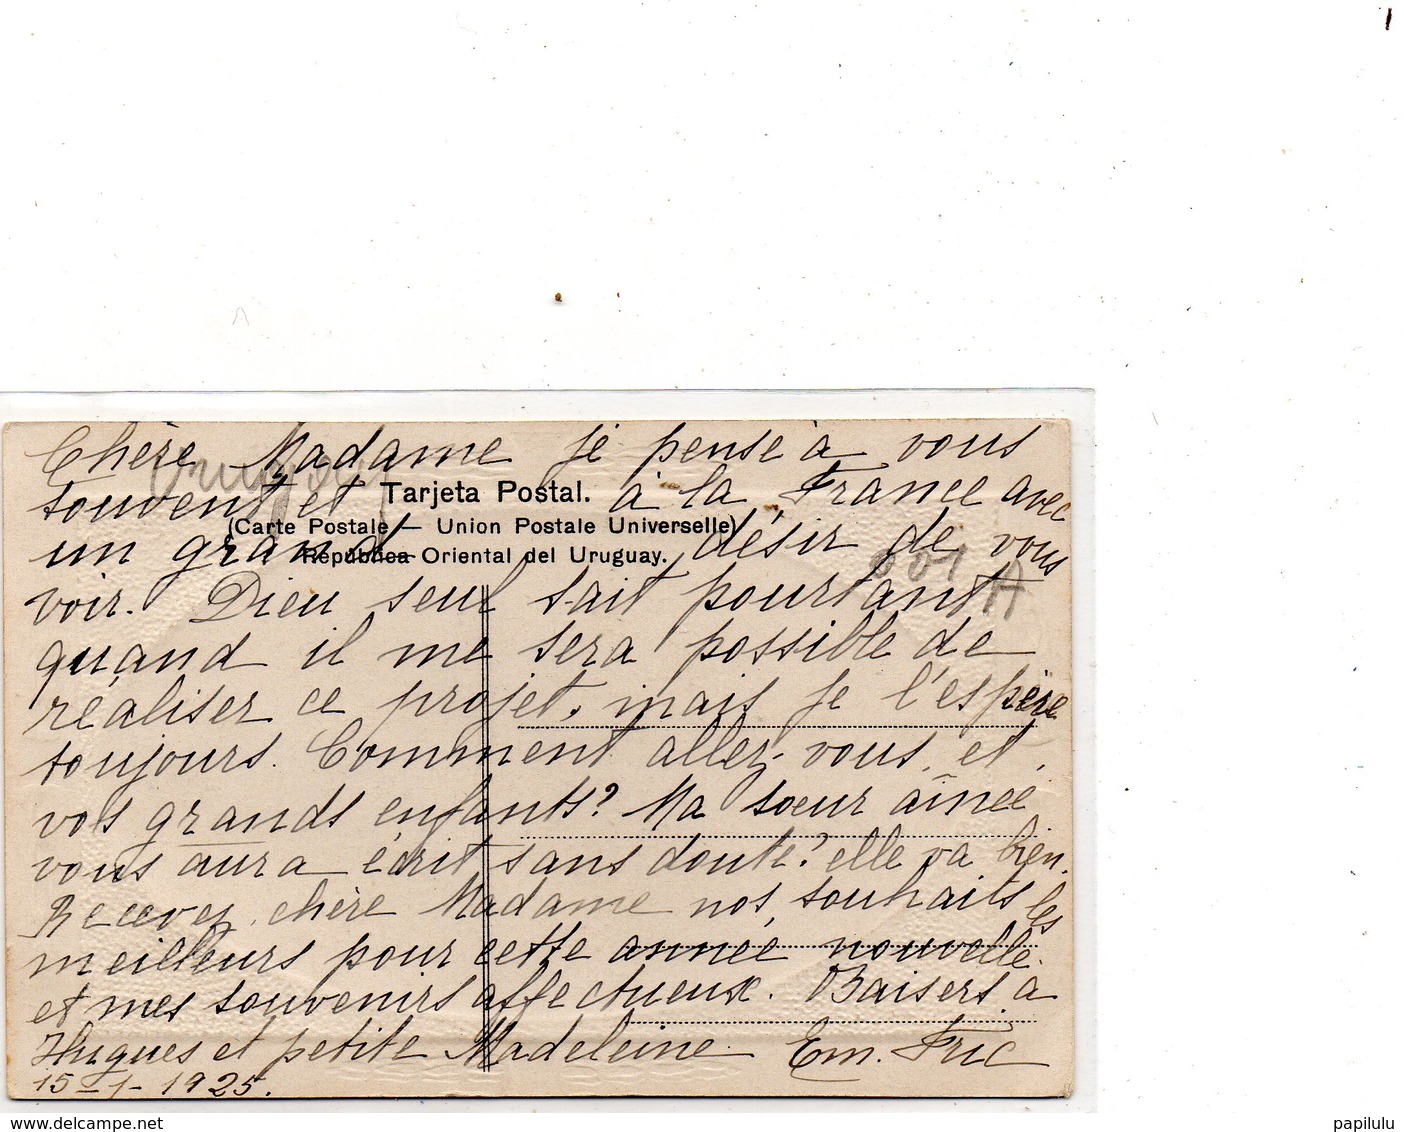 Chère Madame je pense à vous
souvent et à la France avec
Tarjeta Postal.
(Carte Postale — Union Postale Universelle)
un grand désir de vous
República Oriental del Uruguay.
Uruguay
001 A
voir. Dieu seul sait pourtant
quand il me sera possible de
réaliser ce projet, mais je l'espère
toujours. Comment allez-vous, et
vos grands enfants? Ma sœur aînée
vous aura écrit sans doute? elle va bien.
Recevez, chère Madame nos souhaits les
meilleurs pour cette année nouvelle.
et mes souvenirs affectueux. Baisers à
Hugues et petite Madeleine. Em. Fric
15-1-1925.
www.delcampe.net papilulu